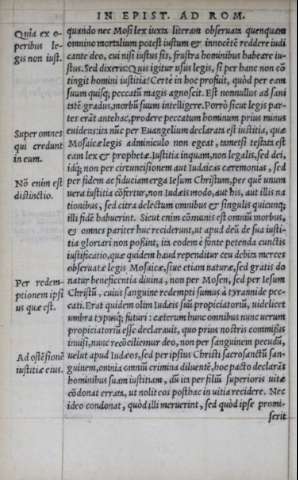 IN EPIST. AD ROM.
Quia ex o-
peribus le-
gis non iust.
Super omnes
qui credunt
in eum.
Nō enim est
distinctio.
Per redem-
ptionem ipsi
us quæ est.
Ad ostēsionē
iustitiæ eius.
quando nec Mosi lex iuxta literam obseruata quenquam
omnino mortalium potest iustum & innocētē reddere iudi
cante deo, cui nisi iustus sis, frustra hominibus habeare iu-
stus. Sed dixeris: Quis igitur usus legis, si per hanc non cō
tingit homini iustitia? Certe in hoc profuit, quòd per eam
suum quisq; peccatū magis agnoscit. Est nonnullus ad sani
tatē gradus, morbū suum intelligere. Porrò sicut legis par-
tes erāt antehac, prodere peccatum hominum prius minus
euidens: ita nūc per Euangelium declarata est iustitia, quæ
Mosaicæ legis adminiculo non egeat, tametsi testata est
eam lex & prophetæ. Iustitia inquam, non legalis, sed dei,
idq; non per circuncisionem aut Iudaicas ceremonias, sed
per fidem ac fiduciam erga Iesum Christum, per quē unum
uera iustitia cōfertur, non Iudæis modo, aut his, aut illis na
tionibus, sed citra delectum omnibus & singulis quicunq;
illi fidē habuerint. Sicut enim cōmunis est omniū morbus,
& omnes pariter huc reciderunt, ut apud deū de sua iusti-
tia gloriari non possint, ita eodem è fonte petenda cunctis
iustificatio, quæ quidem haud rependitur ceu debita merces
obseruatæ legis Mosaicæ, siue etiam naturæ, sed gratis do
natur beneficentia diuina, non per Mosen, sed per Iesum
Christū, cuius sanguine redempti sumus à tyrannide pec-
cati. Erat quidem olim Iudæis suū propiciatoriū, uidelicet
umbra typusq; futuri: cæterum hunc omnibus nunc uerum
propiciatoriū esse declarauit, quo prius nostris commissis
inuisi, nunc recōciliemur deo, non per sanguinem pecudū,
uelut apud Iudæos, sed per ipsius Christi sacrosanctū san-
guinem, omnia omniū crimina diluentē, hoc pacto declarās
hominibus suam iustitiam, dū iis per filiū superioris uitæ
cōdonat errata, ut nolit eos posthac in uitia recidere. Nec
ideo condonat, quòd illi meruerint, sed quòd ipse promi-
serit